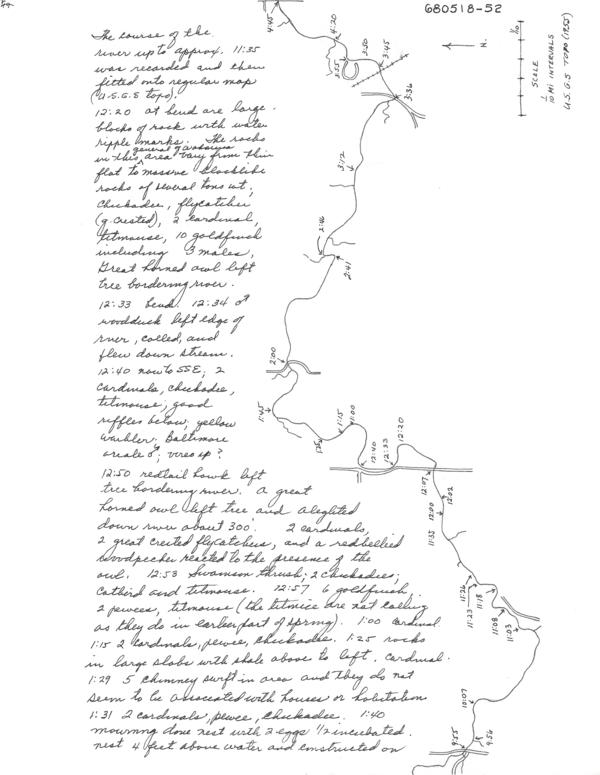 680518-52
The course of the
river up to approx. 11:35
was recorded and then
fitted onto regular map
(U.S.G.S topo).
12:20 at bend are large
blocks of rock with water
ripple marks. The rocks
general of
in this area vary from thin
flat to massive blocklike
rocks of several tons wt;
chickadee, flycatcher
(g. crested), 2 cardinal,
titmouse, 10 goldfinch
including 3 males,
Great horned owl left
tree bordering river.
12:33 bend. 12:34 ♂
woodduck left edge of
river, called, and
flew down stream.
12:40 now to SSE; 2
cardinals, chickadee,
titmouse; good
riffles below; yellow
warbler; Baltimore
oriole ♂; vireo sp?
12:50 redtail hawk left
tree bordering river. A great
horned owl left tree and alighted
down river about 300'. 2 cardinals,
2 great crested flycatchers, and a redbellied
woodpecker reacted to the presence of the
owl. 12:53 Swainson thrush; 2 chickadees;
catbird and titmouse. 12:57 6 goldfinch.
2 pewees, titmouse (the titmice are not calling
as they do in earlier part of spring). 1:00 cardinal
1:15 2 cardinals, pewee, chickadee. 1:25 rocks
in large slabs with shale above to left. cardinal.
1:29 5 chimney swift in area and they do not
seem to be associated with houses or habitation
1:31 2 cardinals, pewee, chickadee. 1:40
mourning dove nest with 2 eggs 1/2 incubated.
nest 4 feet above water and constructed on
4:45
4:20
3:55
3:50
3:45
3:36
N.
1/10
SCALE
1/10 MI INTERVALS
U.S.G.S TOPO (1955)
3:12
2:46
2:41
2:00
1:45
1:25
1:15
1:00
12:40
12:33
12:20
12:07
12:02
12:00
11:53
11:26
11:23
11:18
11:08
11:03
10:07
9:55
9:56